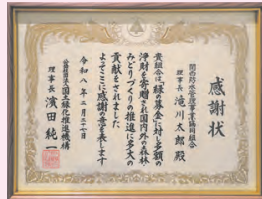 感謝状
関西防水管理事業協同組合
理事長 滝川太郎 殿
貴組合は、緑の募金に対し多額の
浄財を寄贈され国内外の森林
みどりづくりの推進に多大の
貢献をされました
よってここに感謝の意を表します
令和八年二月二十七日
公益社団法人国土緑化推進機構
理事長 濱田純一